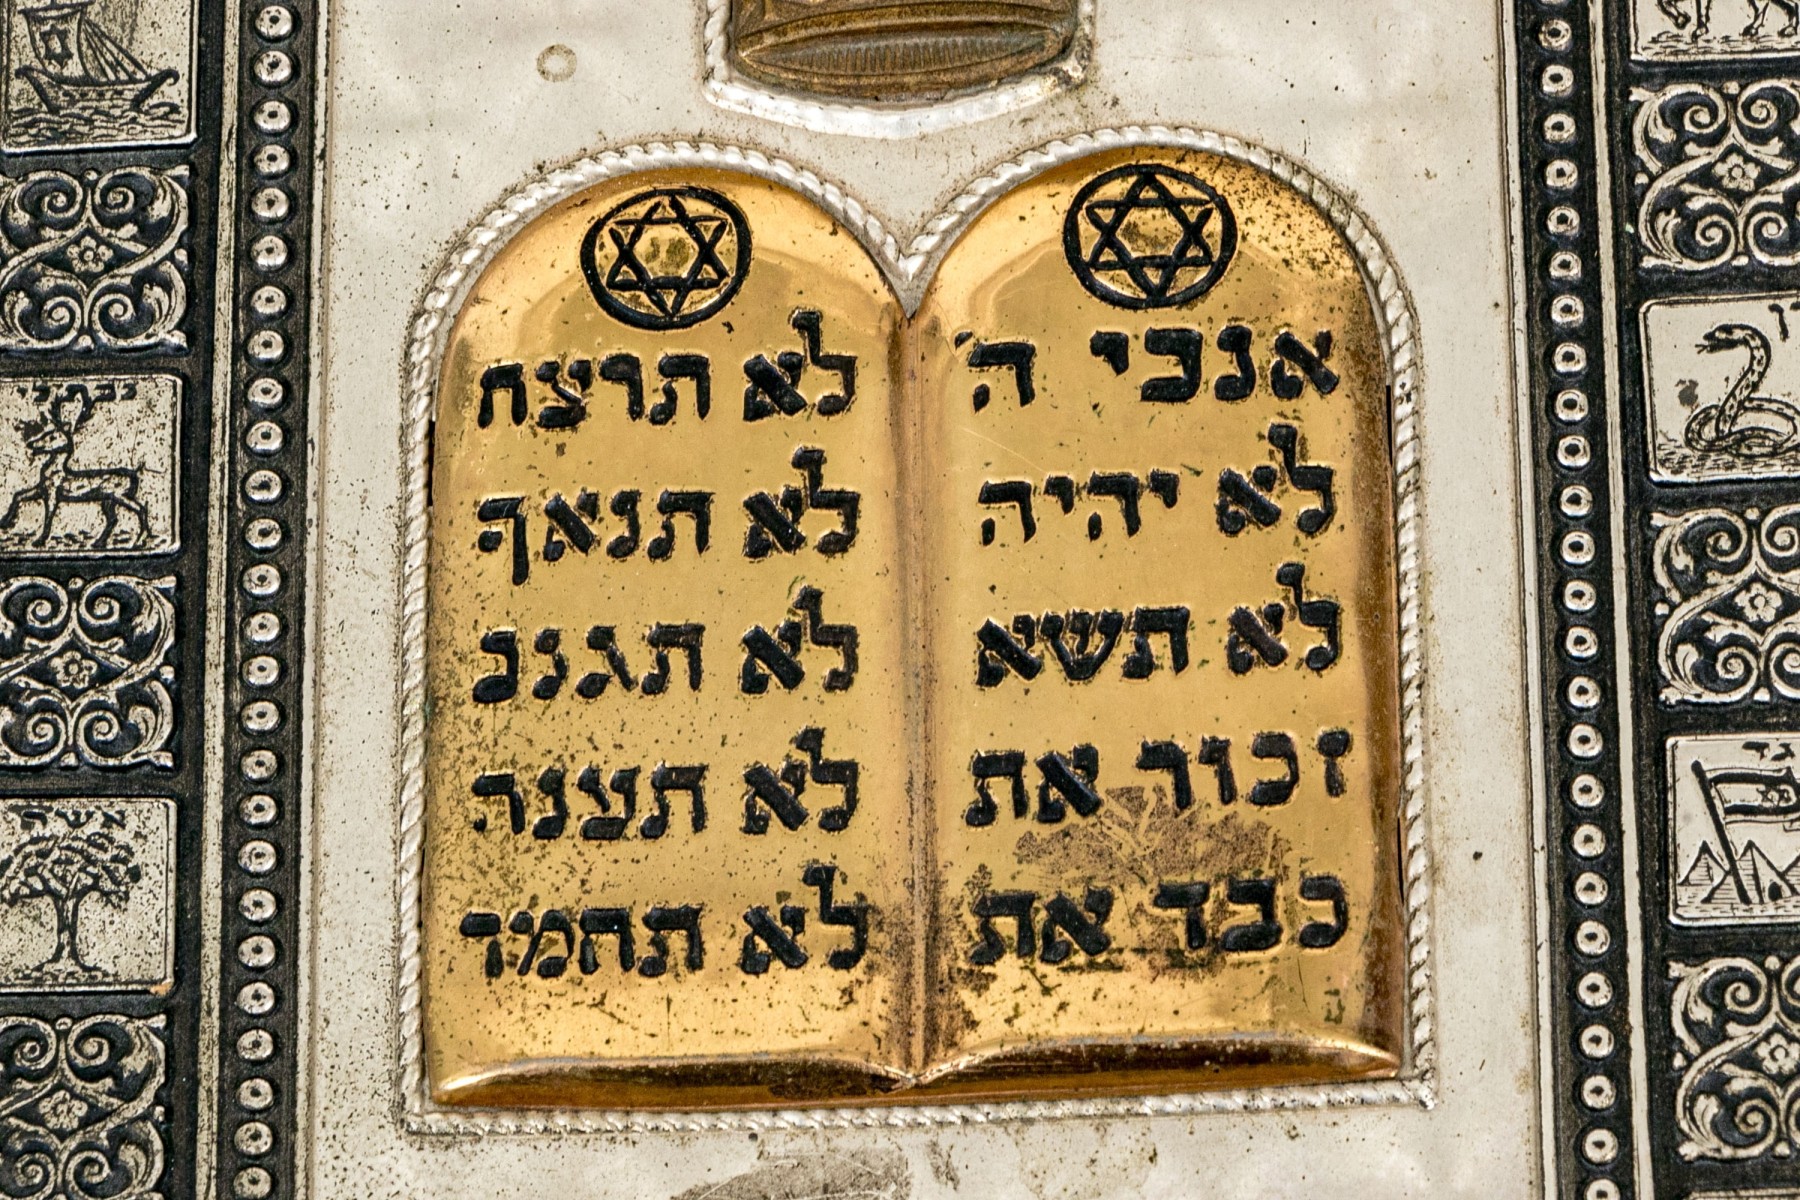 אנכי ה׳
לא יהיה
לא תשא
זכור את
כבד את
לא תרצח
לא תנאף
לא תגנב
לא תענה
לא תחמד
גד
נפתלי
אשר